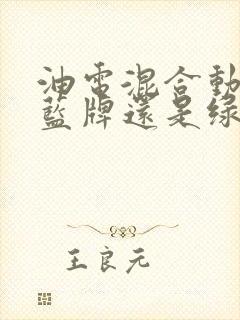 油電混合動
藍牌還是綠
王良元